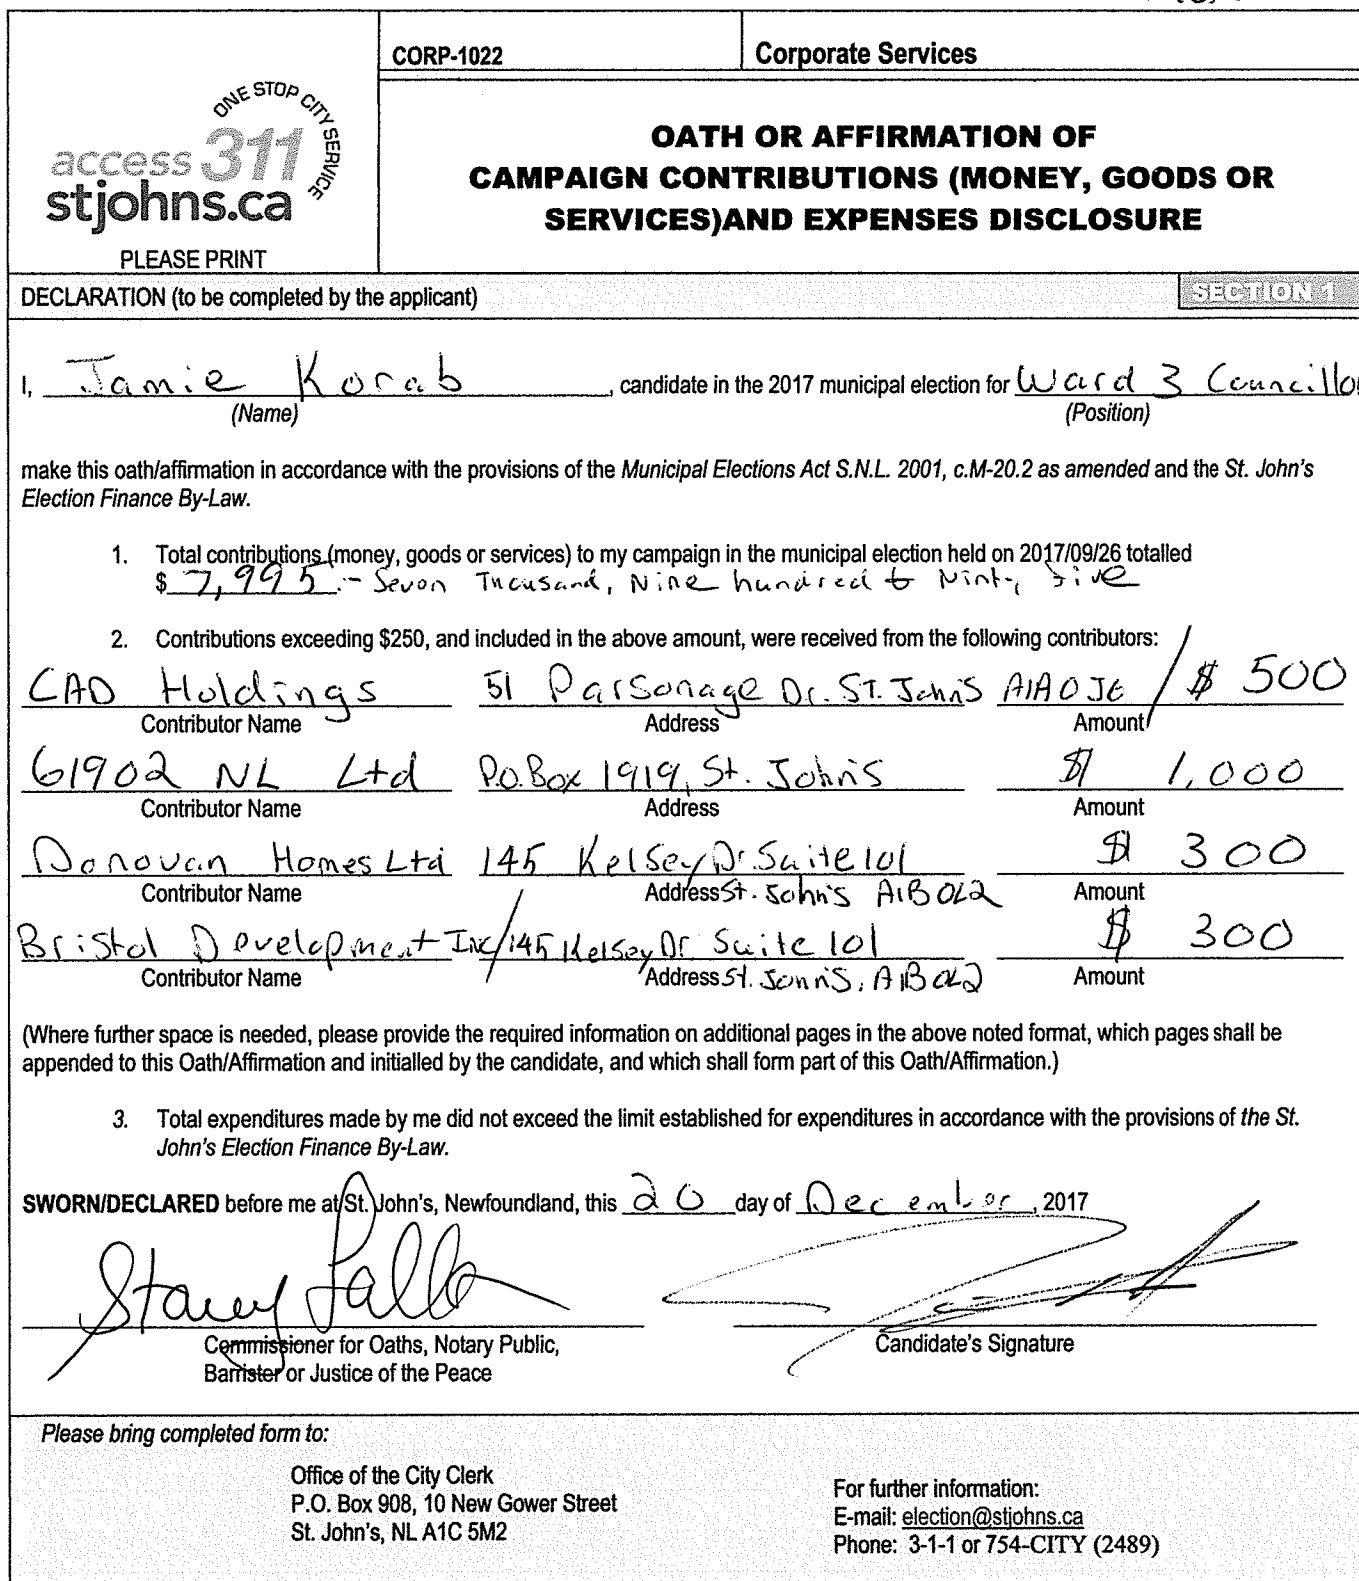 CORP-1022
Corporate Services
ONE STOP CITY SERVICE
access 311
stjohns.ca
PLEASE PRINT
OATH OR AFFIRMATION OF
CAMPAIGN CONTRIBUTIONS (MONEY, GOODS OR
SERVICES)AND EXPENSES DISCLOSURE
DECLARATION (to be completed by the applicant)
SECTION 1
I, Jamie Korab, candidate in the 2017 municipal election for Ward 3 Councillor
(Name) (Position)
make this oath/affirmation in accordance with the provisions of the Municipal Elections Act S.N.L. 2001, c.M-20.2 as amended and the St. John's
Election Finance By-Law.
1. Total contributions (money, goods or services) to my campaign in the municipal election held on 2017/09/26 totalled
$ 7,995.- Seven Thousand, Nine hundred & Ninty five
2. Contributions exceeding $250, and included in the above amount, were received from the following contributors:
CAD Holdings 51 Parsonage Dr. St. John's A1A 0J6 / $ 500
Contributor Name Address Amount
61902 NL Ltd P.O. Box 1919, St. John's $ 1,000
Contributor Name Address Amount
Donovan Homes Ltd 145 Kelsey Dr. Suite 101 $ 300
Contributor Name Address St. John's A1B 0L2 Amount
Bristol Development Inc / 145 Kelsey Dr Suite 101 $ 300
Contributor Name Address St. John's, A1B 0L2 Amount
(Where further space is needed, please provide the required information on additional pages in the above noted format, which pages shall be
appended to this Oath/Affirmation and initialled by the candidate, and which shall form part of this Oath/Affirmation.)
3. Total expenditures made by me did not exceed the limit established for expenditures in accordance with the provisions of the St.
John's Election Finance By-Law.
SWORN/DECLARED before me at St. John's, Newfoundland, this 20 day of December, 2017
Stacey
Commissioner for Oaths, Notary Public, Candidate's Signature
Barrister or Justice of the Peace
Please bring completed form to:
Office of the City Clerk
P.O. Box 908, 10 New Gower Street
St. John's, NL A1C 5M2
For further information:
E-mail: election@stjohns.ca
Phone: 3-1-1 or 754-CITY (2489)